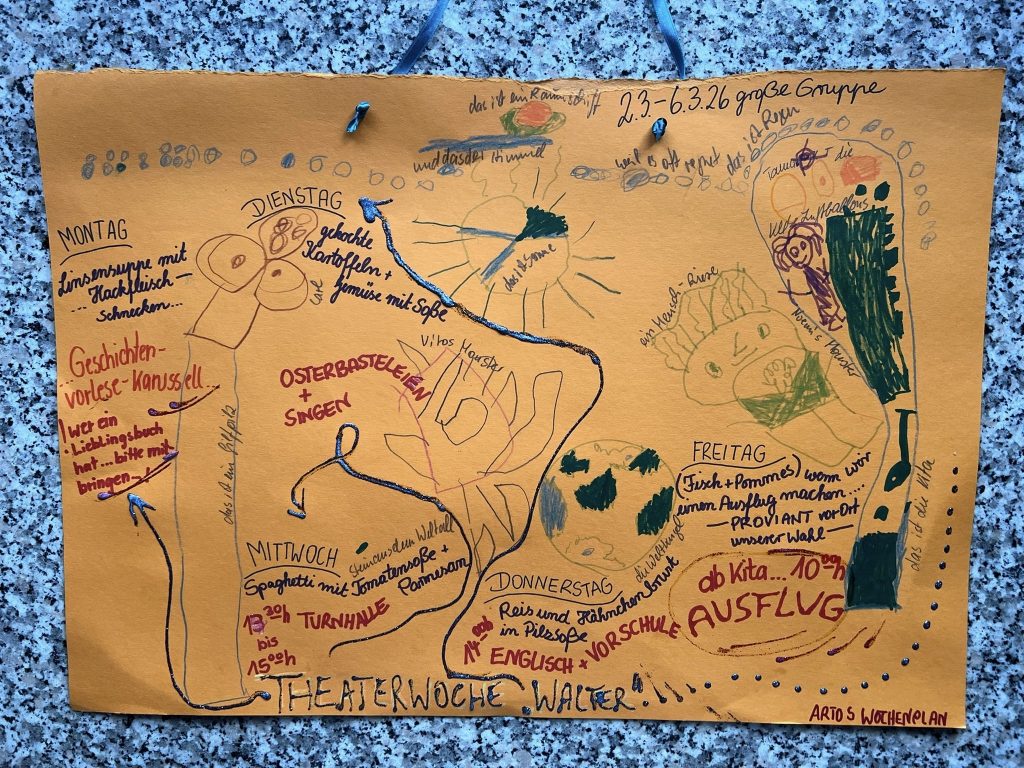 das ist ein Raumschiff
2.3.-6.3.26 große Gruppe
und das der Himmel
weil es oft regnet das ist Regen
MONTAG
Linsensuppe mit
Hackfleisch -
... Schnecken...
Geschichten-
vorlese-Karussell...
! wer ein
Lieblingsbuch
hat... bitte mit
bringen -
das ist ein
DIENSTAG
gekochte
Kartoffeln +
gemüse mit Soße
OSTERBASTELEIEN
+
SINGEN
das ist Sonne
Vitos Monster
ein Mensch-Riese
die
Luftballons
Monster
MITTWOCH
Stein aus dem Weltall
Spaghetti mit Tomatensoße +
Parmesan
13.30h TURNHALLE
bis
15.00h
DONNERSTAG
Reis und Hähnchenbrust
in Pilzsoße
14.00h
ENGLISCH + VORSCHULE
die Weltkugel
FREITAG
(Fisch + Pommes) wenn wir
einen Ausflug machen....
- PROVIANT vor Ort
unserer Wahl -
ab Kita... 10.00h
AUSFLUG
das ist die Kita
THEATERWOCHE WALTER!
ARTOS WOCHENPLAN